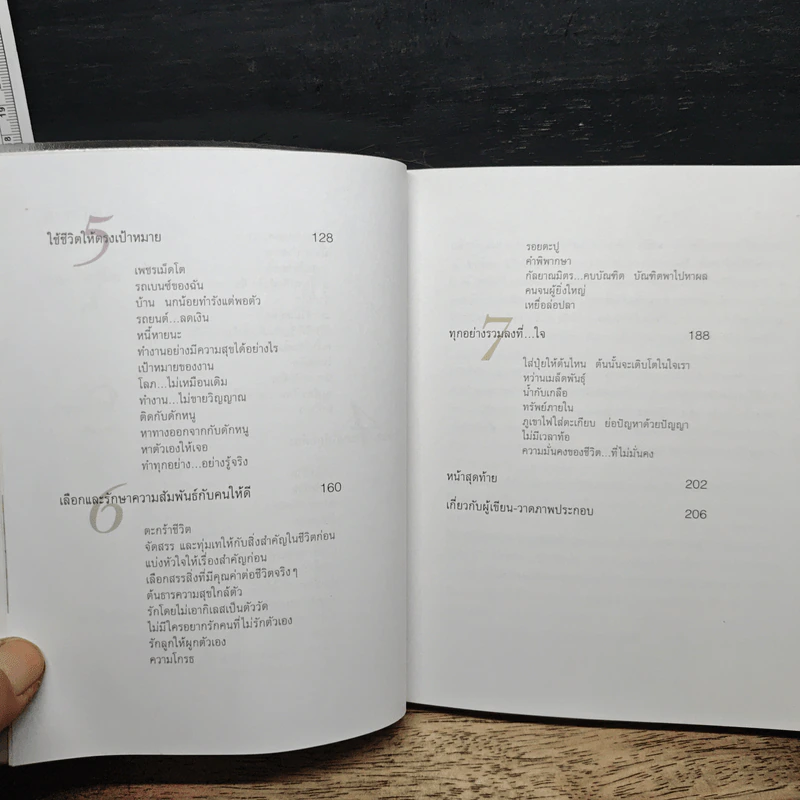 5
ใช้ชีวิตให้ตรงเป้าหมาย 128
เพชรเม็ดโต
รถเบนซ์ของฉัน
บ้าน นกน้อยทำรังแต่พอตัว
รถยนต์...ลดเงิน
หนี้หายนะ
ทำงานอย่างมีความสุขได้อย่างไร
เป้าหมายของงาน
โลภ...ไม่เหมือนเดิม
ทำงาน...ไม่ขายวิญญาณ
ติดกับดักหนู
หาทางออกจากกับดักหนู
หาตัวเองให้เจอ
ทำทุกอย่าง...อย่างรู้จริง
6
เลือกและรักษาความสัมพันธ์กับคนให้ดี 160
ตะกร้าชีวิต
จัดสรร และทุ่มเทให้กับสิ่งสำคัญในชีวิตก่อน
แบ่งหัวใจให้เรื่องสำคัญก่อน
เลือกสรรสิ่งที่มีคุณค่าต่อชีวิตจริงๆ
ต้นธารความสุขใกล้ตัว
รักโดยไม่เอากิเลสเป็นตัววัด
ไม่มีใครอยากรักคนที่ไม่รักตัวเอง
รักลูกให้ผูกตัวเอง
ความโกรธ
รอยตะปู
คำพิพากษา
กัลยาณมิตร...คบบัณฑิต บัณฑิตพาไปหาผล
คนจนผู้ยิ่งใหญ่
เหยื่อล่อปลา
7
ทุกอย่างรวมลงที่...ใจ 188
ใส่ปุ๋ยให้ต้นไหน ต้นนั้นจะเติบโตในใจเรา
หว่านเมล็ดพันธุ์
น้ำกับเกลือ
ทรัพย์ภายใน
ภูเขาไฟใส่ตะเกียบ ย่อปัญหาด้วยปัญญา
ไม่มีเวลาท้อ
ความมั่นคงของชีวิต...ที่ไม่มั่นคง
หน้าสุดท้าย 202
เกี่ยวกับผู้เขียน-วาดภาพประกอบ 206
19
8